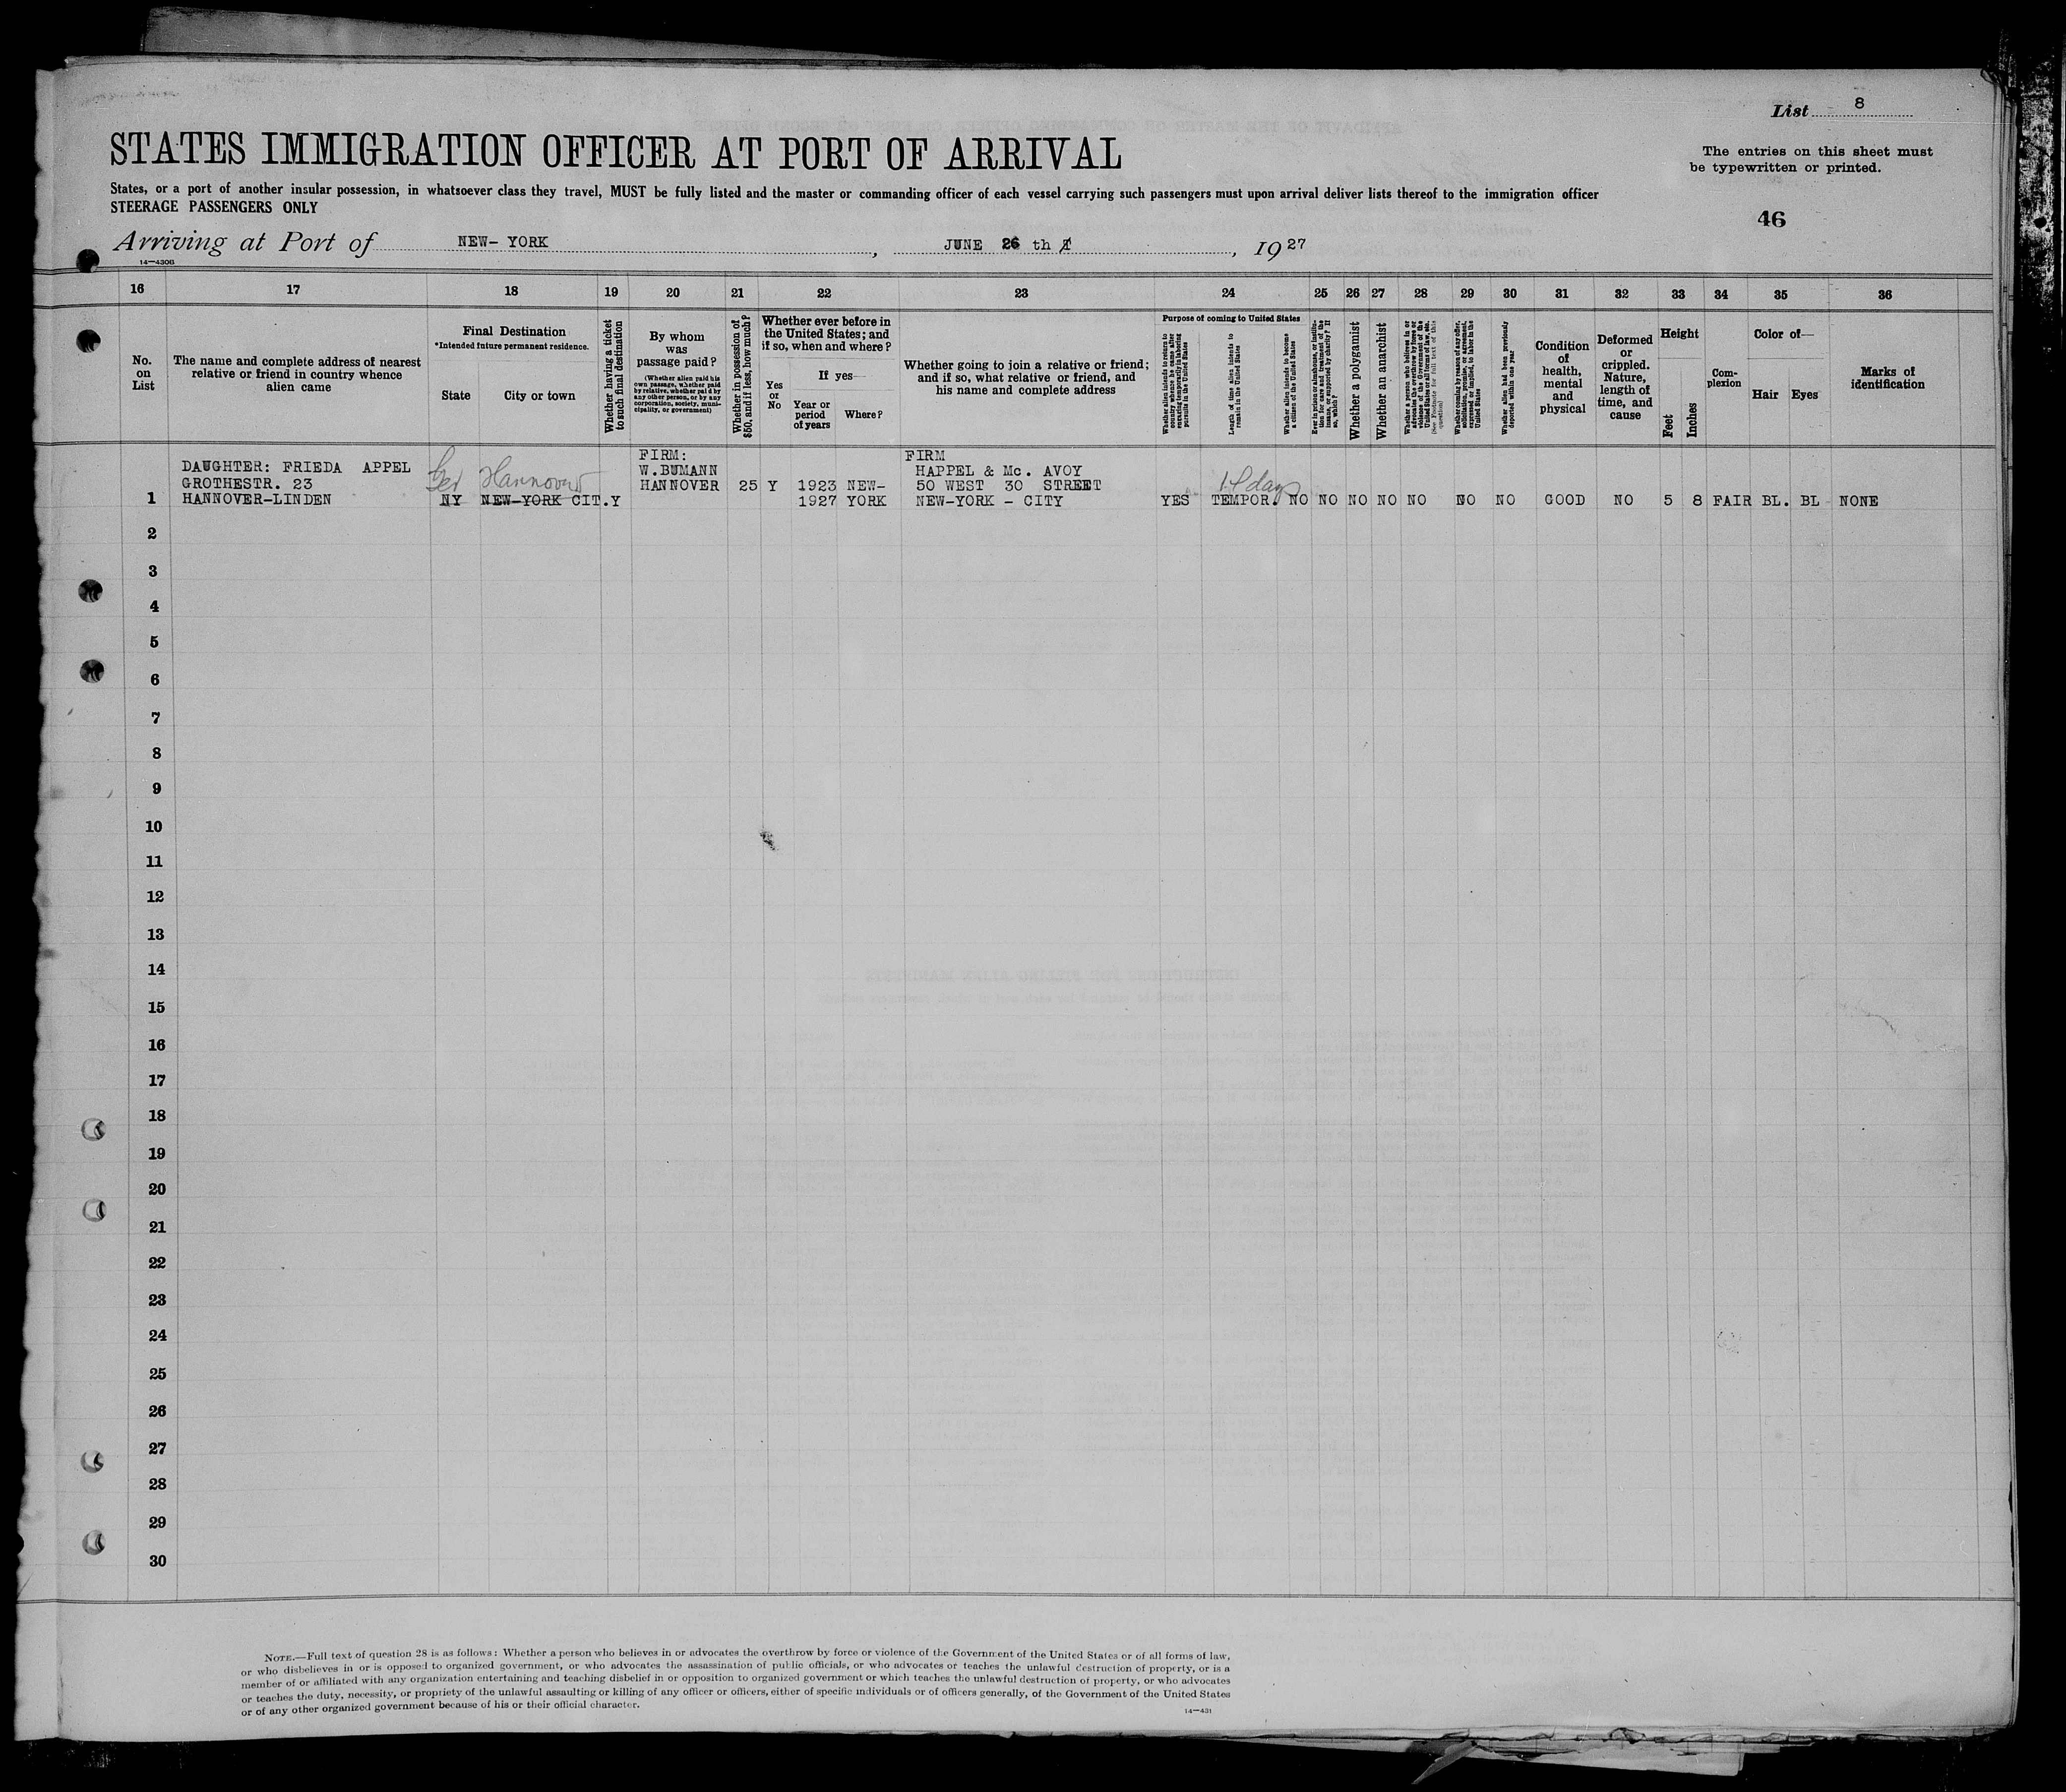 List 8
STATES IMMIGRATION OFFICER AT PORT OF ARRIVAL
The entries on this sheet must
be typewritten or printed.
States, or a port of another insular possession, in whatsoever class they travel, MUST be fully listed and the master or commanding officer of each vessel carrying such passengers must upon arrival deliver lists thereof to the immigration officer
STEERAGE PASSENGERS ONLY
46
Arriving at Port of NEW- YORK, JUNE 26 th, 1927
14—430B
16 17 18 19 20 21 22 23 24 25 26 27 28 29 30 31 32 33 34 35 36
No.
on
List
The name and complete address of nearest
relative or friend in country whence
alien came
Final Destination
*Intended future permanent residence.
State City or town
Whether having a ticket
to such final destination
By whom
was
passage paid?
(Whether alien paid his
own passage, whether paid
by relative, whether paid by
any other person, or by any
corporation, society, muni-
cipality, or government)
Whether in possession of
$50, and if less, how much?
Whether ever before in
the United States; and
if so, when and where?
Yes
or
No
If yes—
Year or
period
of years
Where?
Whether going to join a relative or friend;
and if so, what relative or friend, and
his name and complete address
Purpose of coming to United States
Whether alien intends to return to
country whence he came after
engaging temporarily in laboring
pursuits in the United States
Length of time alien intends to
remain in the United States
Whether alien intends to become
a citizen of the United States
Ever in prison or almshouse, or institu-
tion for care and treatment of the
insane, or supported by charity? If
so, which?
Whether a polygamist
Whether an anarchist
Whether a person who believes in or
advocates the overthrow by force or
violence of the Government of the
United States or all forms of law, etc.
(See Footnote for full text of this
question)
Whether coming by reason of any offer,
solicitation, promise, or agreement,
expressed or implied, to labor in the
United States
Whether alien had been previously
deported within one year
Condition
of
health,
mental
and
physical
Deformed
or
crippled.
Nature,
length of
time, and
cause
Height
Feet Inches
Com-
plexion
Color of—
Hair Eyes
Marks of
identification
FIRM: FIRM
DAUGHTER: FRIEDA APPEL Ger Hannover W.BUMANN HAPPEL & Mc. AVOY
GROTHESTR. 23 HANNOVER 25 Y 1923 NEW- 50 WEST 30 STREET 14 days
1 HANNOVER-LINDEN NY NEW-YORK CIT.Y 1927 YORK NEW-YORK - CITY YES TEMPOR. NO NO NO NO NO NO NO GOOD NO 5 8 FAIR BL. BL NONE
2
3
4
5
6
7
8
9
10
11
12
13
14
15
16
17
18
19
20
21
22
23
24
25
26
27
28
29
30
NOTE.—Full text of question 28 is as follows: Whether a person who believes in or advocates the overthrow by force or violence of the Government of the United States or of all forms of law,
or who disbelieves in or is opposed to organized government, or who advocates the assassination of public officials, or who advocates or teaches the unlawful destruction of property, or is a
member of or affiliated with any organization entertaining and teaching disbelief in or opposition to organized government or which teaches the unlawful destruction of property, or who advocates
or teaches the duty, necessity, or propriety of the unlawful assaulting or killing of any officer or officers, either of specific individuals or of officers generally, of the Government of the United States
or of any other organized government because of his or their official character.
14—431